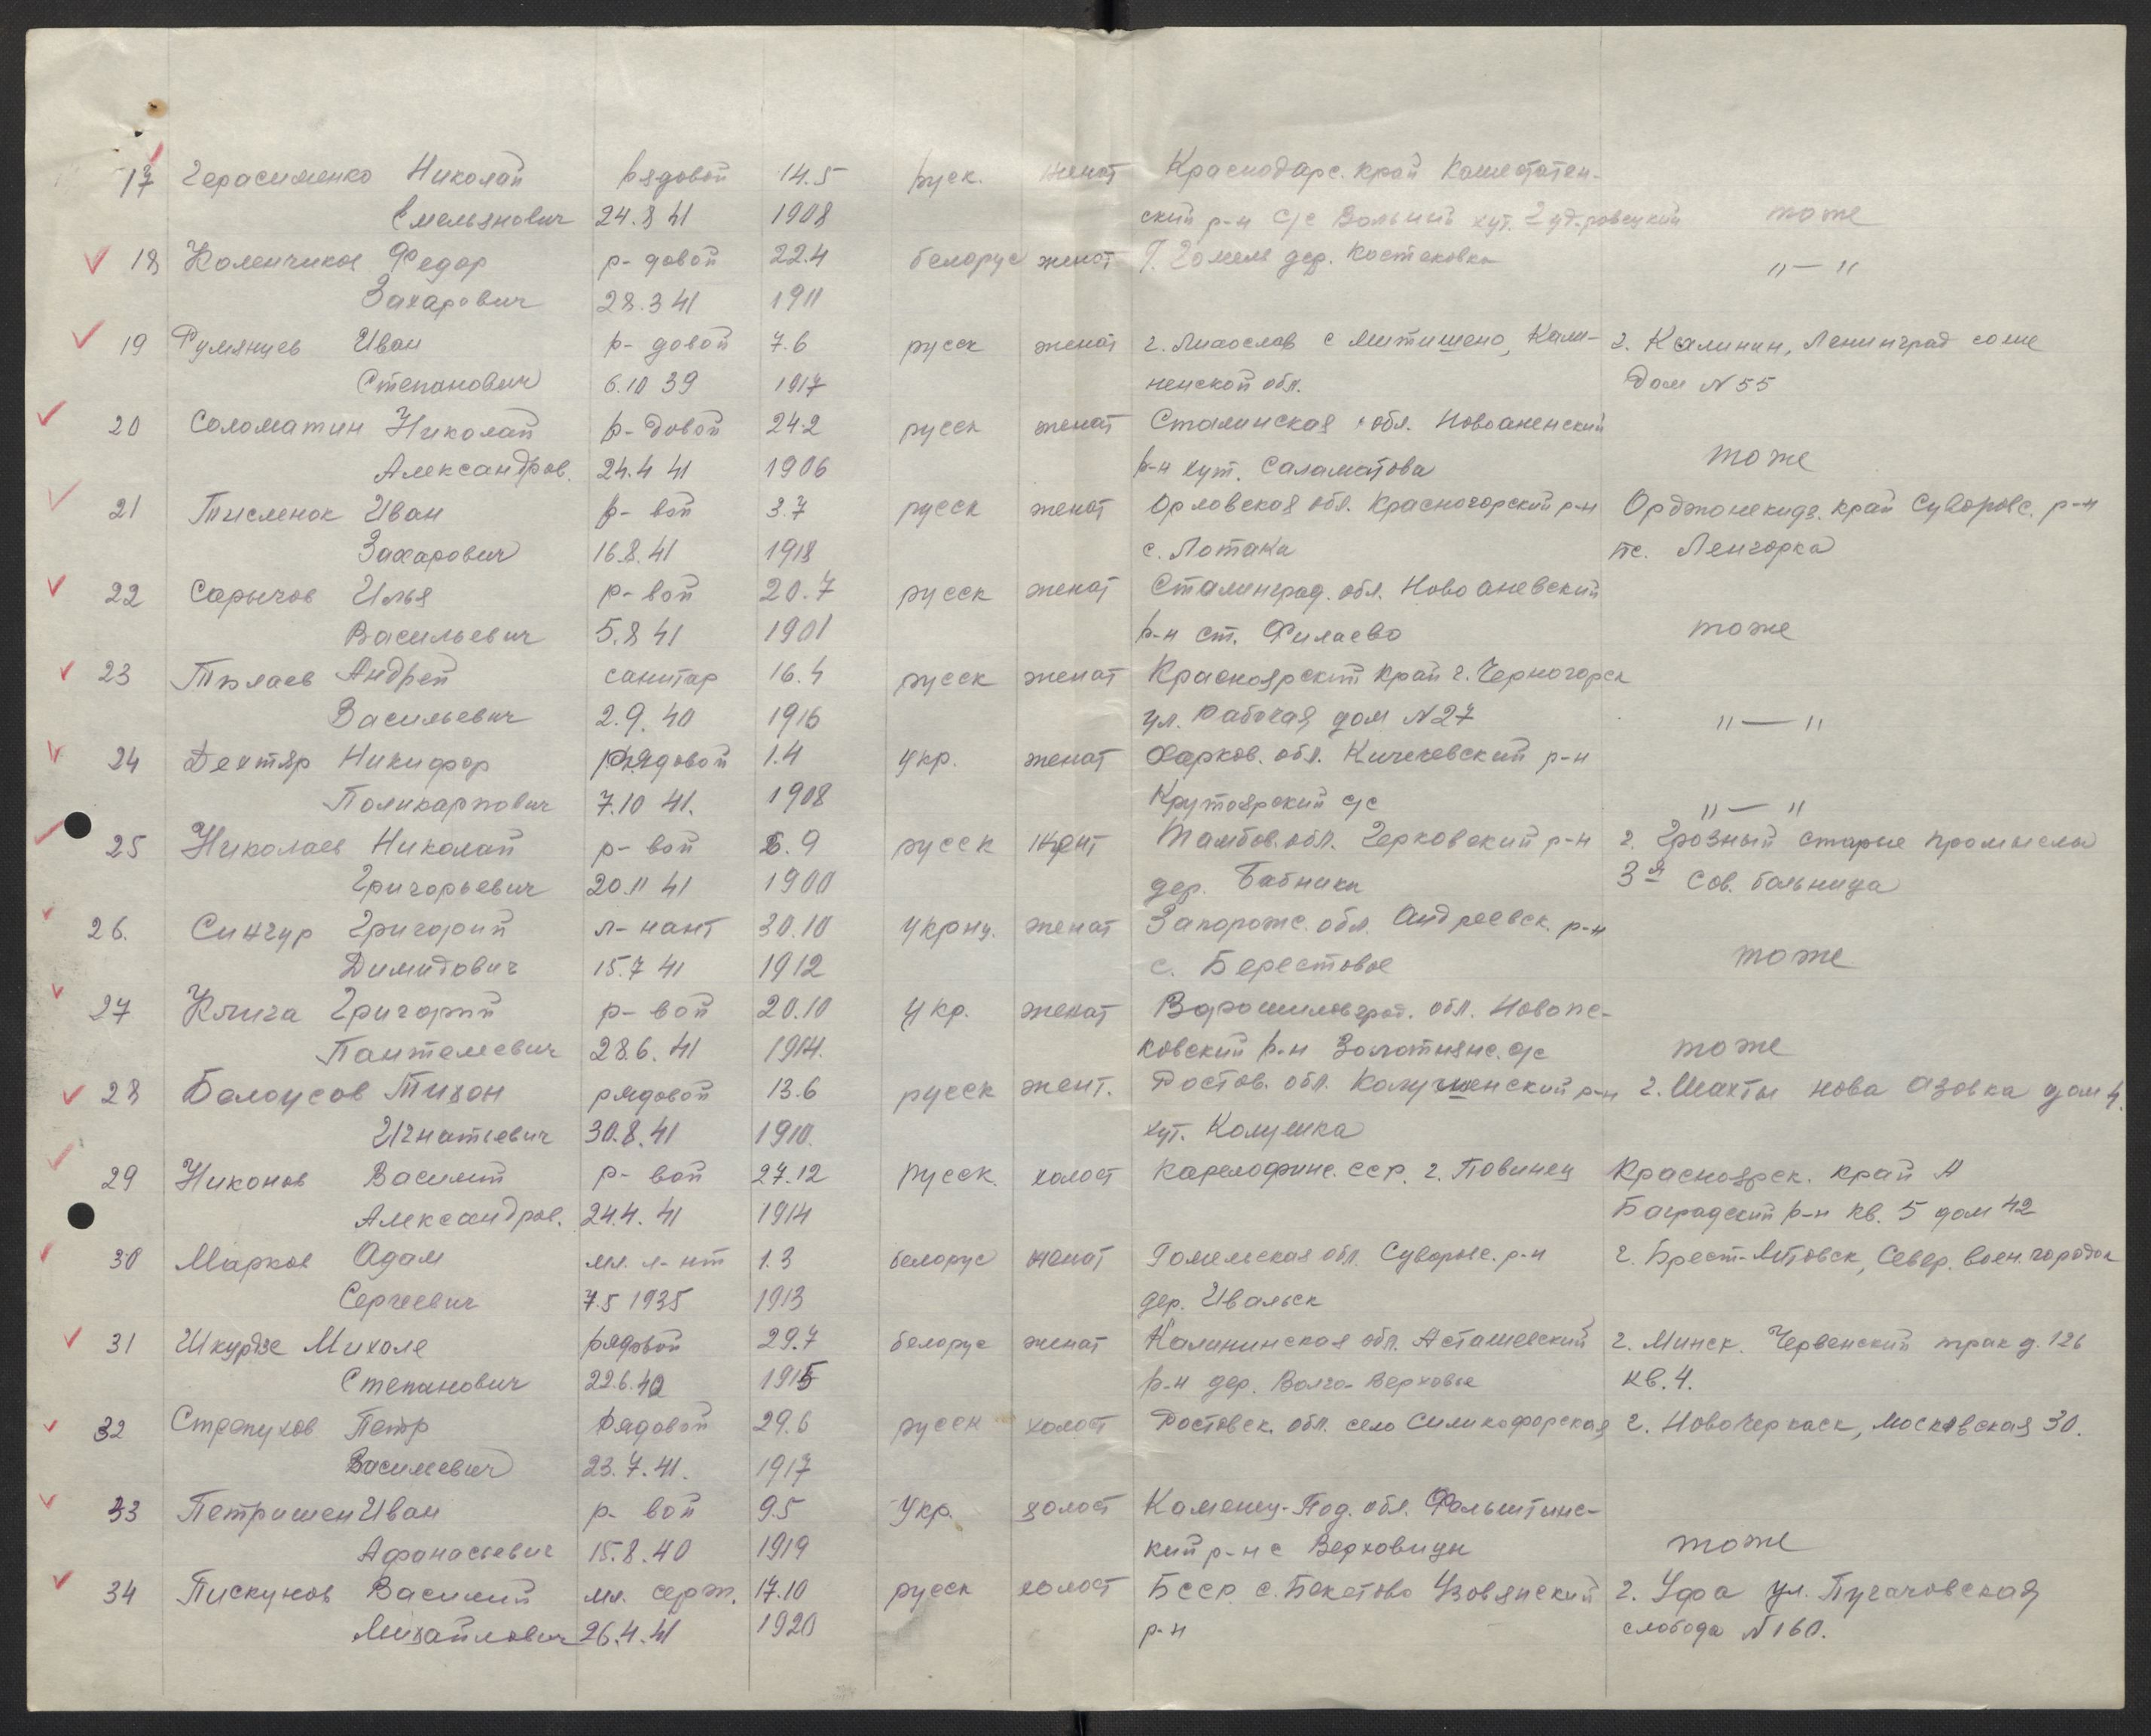 17 Герасименко Николай рядовой 14.5 руск. женат Краснодарс. край
Емельянович 24.8 41 1908 ский р-н с/с Вольный хут. тоже
18 Коленчиков Федор р-довой 22.4 белорус женат Г. Гомель дер. Костюковка "—"
Захарович 28.3 41 1911
19 Румянцев Иван р-довой 7.6 русск женат г. Лихославь с Митишено, Кали- г. Калинин, Ленинград соше
Степанович 6.10 39 1917 ненской обл. Дом N 55
20 Соломатин Николай р-довой 24.2 русск женат Сталинская обл. Новоаненский
Александров. 24.4 41 1906 р-н хут. Саламатова тоже
21 Тисленок Иван р-вой 3.7 русск женат Орловская обл. Красногорский р-н Орджонекидз. край Суворовс. р-н
Захарович 16.8.41 1918 с. Лотаки пс. Ленгорка
22 Сарычов Илья р-вой 20.7 русск женат Сталинград. обл. Ново аневский
Васильевич 5.8 41 1901 р-н ст. Филаево тоже
23 Тюляев Андрей санитар 16.4 русск женат Красноярский край г. Черногорск
Васильевич 2.9.40 1916 ул. Рабочая дом N 27 "—"
24 Дехтяр Никифор рядовой 1.4 укр. женат Харков. обл. Кичечевский р-н
Поликарпович 7.10 41. 1908 Крутоярский с/с "—"
25 Николаев Николай р-вой 6.9 русск Тамбов. обл. р-н г. Грозный старые промысла
Григорьевич 20.11 41 1900 дер. Бабники 3я Сов. больница
26. Сингур Григорий л-нант 30.10 укрнц. женат Запорожс. обл. Андреевск. р-н
Димидович 15.7 41 1912 с. Берестовое тоже
27 Книга Григорий р-вой 20.10 укр. женат Ворошиловград. обл. Новопс-
Пантелеевич 28.6.41 1914. ковский р-н Золотнянс. с/с тоже
28 Белоусов Тихон рядовой 13.6 русск жент. Ростов. обл. р-н г. Шахты нова Азовка дом 4.
Игнатьевич 30.8.41 1910. хут. Колушка
29 Никонов Василий р-вой 27.12 русск. холост Карелофинс. сср. г. Повинец Красноярск. край А
Александров. 24.4.41 1914 Баградский р-н кв. 5 дом 42
30 Марков Адам мл. л-нт 1.3 белорус женат Гомельская обл. Суворовс. р-н г. Брест-Литовск, Север. воен. городок
Сергеевич 7.5 1935 1913 дер. Ивальск
31 Шкурдзе Михале рядовой 29.7 белорус женат Калининская обл. Асташевский г. Минск. Червенский трак д. 126
Степанович 22.6.40 1915 р-н дер. Волго-Верховье кв. 4.
32 Стрепухов Петр рядовой 29.6 русск холост Ростовск. обл. село г. Новочеркаск, Московская 30.
Василевич 23.7.41. 1917
33 Петришен Иван р-вой 9.5 Укр. холост Каменец-Под. обл. Фельштинс-
Афанасьевич 15.8.40 1919 кий р-н с Верховицы тоже
34 Пискунов Василий мл. серж. 17.10 русск холост БССР с. Бекетово Узовянский г. Уфа ул. Пугачовская
Михайлович 26.4.41 1920 р-н слобода N 160.